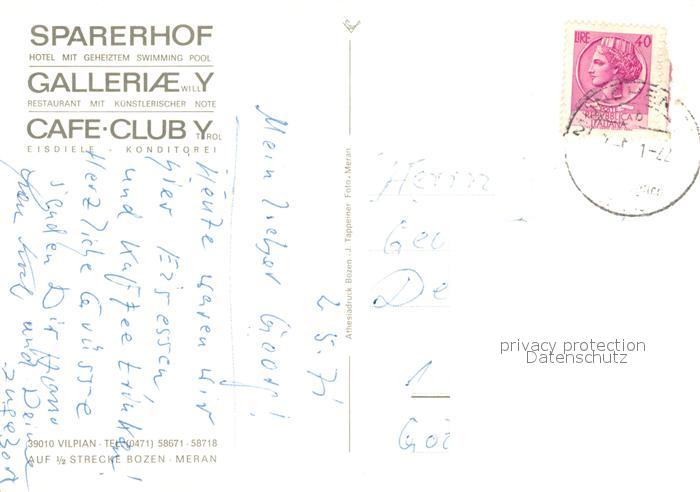 SPARERHOF
HOTEL MIT GEHEIZTEM SWIMMING POOL
GALLERIÆ WILLY
RESTAURANT MIT KÜNSTLERISCHER NOTE
CAFE·CLUB TYROL
EISDIELE - KONDITOREI
Mein lieber Georg!
Heute waren wir
hier Eis essen
und Kaffee trinken!
Herzliche Grüsse
senden Dir
und Deine
39010 VILPIAN · TEL. (0471) 58671 - 58718
AUF ½ STRECKE BOZEN - MERAN
Athesiadruck Bozen · J. Tappeiner Foto · Meran
LIRE 40
REPUBBLICA
ITALIANA
Herrn
Geo
De
1
privacy protection
Datenschutz